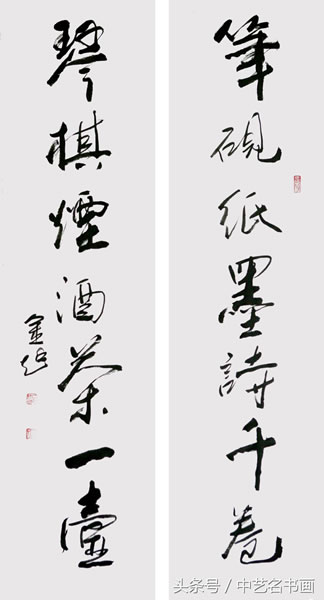 筆硯紙墨詩千卷
琴棋煙酒茶一壺
头条号／中艺名书画